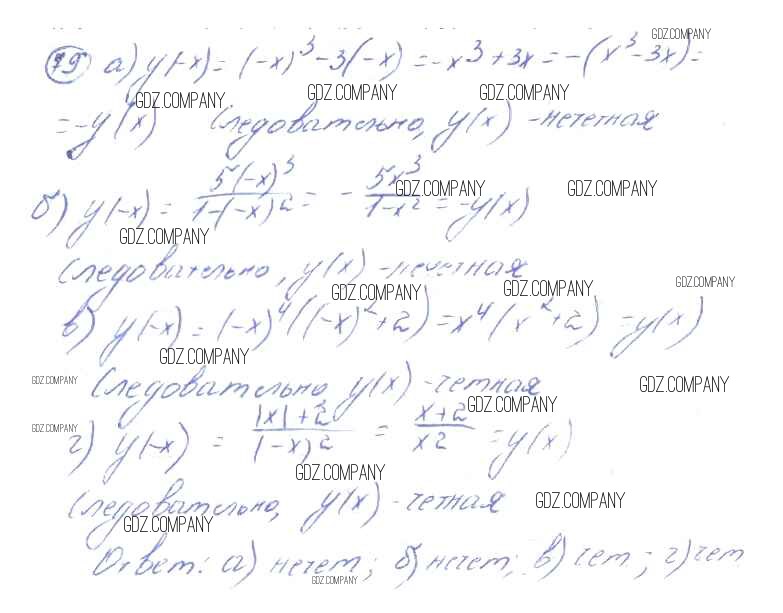 GDZ.COMPANY
79 а) y(-x) = (-x)³ - 3(-x) = -x³ + 3x = -(x³ - 3x) =
GDZ.COMPANY GDZ.COMPANY GDZ.COMPANY
= -y(x) Следовательно, y(x) - нечетная
б) y(-x) = 5(-x)³ / 1-(-x)² = - 5x³ / 1-x² = -y(x)
GDZ.COMPANY GDZ.COMPANY
GDZ.COMPANY
Следовательно, y(x) - нечетная
GDZ.COMPANY GDZ.COMPANY GDZ.COMPANY
в) y(-x) = (-x)⁴((-x)²+2) = x⁴(x²+2) = y(x)
GDZ.COMPANY
GDZ.COMPANY GDZ.COMPANY
Следовательно y(x) - четная
GDZ.COMPANY GDZ.COMPANY
г) y(-x) = |x|+2 / (-x)² = x+2 / x2 = y(x)
GDZ.COMPANY
Следовательно, y(x) - четная
GDZ.COMPANY GDZ.COMPANY
Ответ: а) нечет; б) нечет; в) чет; г) чет
GDZ.COMPANY